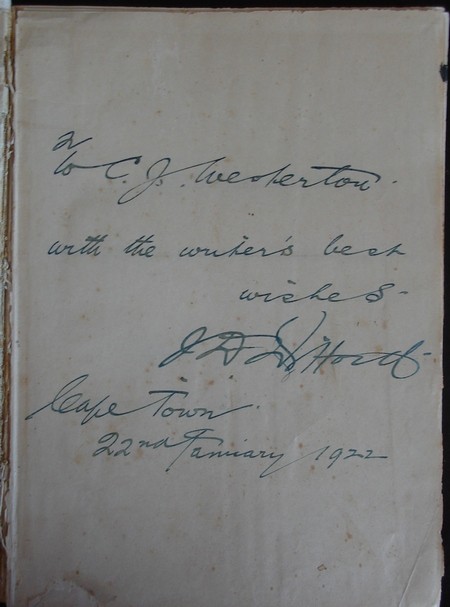 To C. J. Westerton.
with the writer's best
wishes -
J D
Cape Town
22nd January 1922